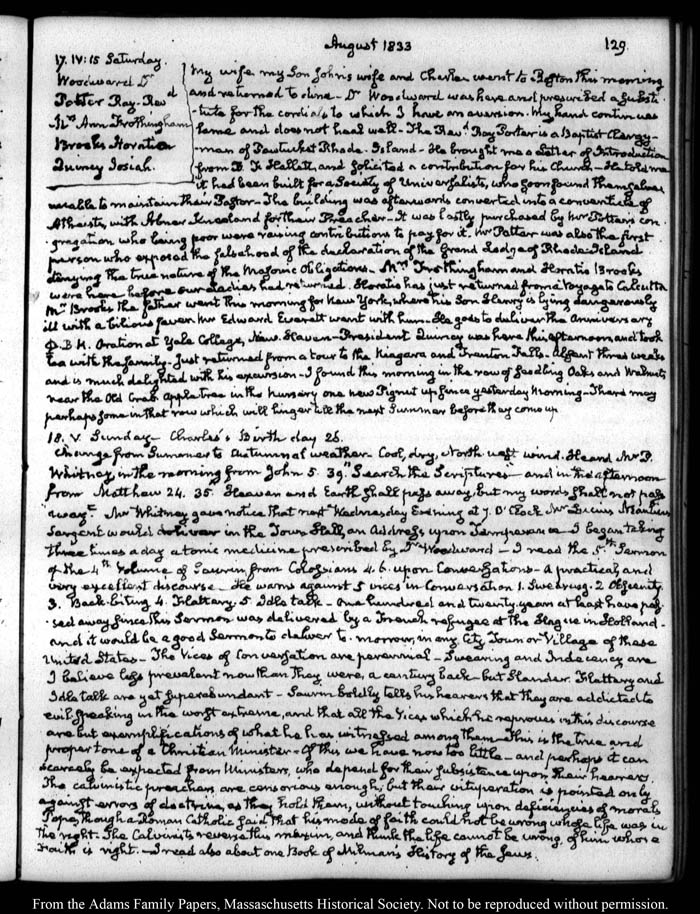 August 1833
129
17. IV:15 Saturday.
Woodward Dr
Potter Ray. Revd
Mrs Ann Frothingham
Brooks Horatio
Quincy Josiah.
My wife my Son John's wife and Charles went to Boston this morning
and returned to dine - Dr Woodward was here and prescribed a substi-
tute for the cordials to which I have an aversion. My hand continues
lame and does not heal well - The Revd Ray Potter is a Baptist Clergy-
man of Pawtucket Rhode-Island - He brought me a Letter of Introduction
from B. F. Hallett, and solicited a contribution for his Church - He told me
it had been built for a Society of Universalists, who soon found themselves
unable to maintain their Pastor - The building was afterwards converted into a conventicle of
Atheists, with Abner Kneeland for their Preacher - It was lastly purchased by Mr Potter's con
gregation who being poor were raising contributions to pay for it. Mr Potter was also the first
person who exposed the falsehood of the declaration of the Grand Lodge of Rhode-Island
denying the true nature of the Masonic Obligations - Mrs Frothingham and Horatio Brooks
were here before our Ladies had returned. Horatio has just returned from a Voyage to Calcutta
Mr Brooks the father went this morning for New York, where his Son Henry is lying dangerously
ill with a bilious fever. Mr Edward Everett went with him - He goes to deliver the Anniversary
Φ. B. K. Oration at Yale College, New-Haven - President Quincy was here this afternoon and took
tea with the family - Just returned from a tour to the Niagara and Trenton Falls - Absent three weeks
and is much delighted with his excursion - I found this morning in the row of seedling Oaks and Walnuts
near the Old Crab Apple tree in the Nursery one new Pignut up since yesterday morning - There may
perhaps some in that row which will linger till the next Summer before they come up
18. V. Sunday - Charles's Birth day 26.
Change from Summer to Autumnal weather - Cool, dry, North-west wind. Heard Mr P.
Whitney in the morning from John 5. 39. "Search the Scriptures" and in the afternoon
from Matthew 24. 35. Heaven and Earth shall pass away, but my words shall not pass
away" Mr Whitney gave notice that next Wednesday Evening at 7. O'Clock Mr Lucius Manlius
Sargent would deliver in the Town Hall, an Address upon Temperance - I began taking
three times a day a tonic medicine prescribed by Dr Woodward - I read the 5th Sermon
of the 4th Volume of Saurin, from Colossians 4. 6. upon Conversations - A practical and
very excellent discourse - He warns against 5 vices in Conversation 1. Swearing. 2 Obscenity
3. Back-biting 4. Flattery. 5 Idle talk - One hundred and twenty years at least have pas-
sed away since this Sermon was delivered by a French refugee at the Hague in Holland -
and it would be a good Sermon to deliver to-morrow, in any City Town or Village of these
United States - The Vices of Conversation are perennial - Swearing and Indecency are
I believe less prevalent now than they were, a century back - but Slander. Flattery and
Idle talk are yet superabundant - Saurin boldly tells his hearers that they are addicted to
evil speaking in the worst extreme, and that all the Vices which he reproves in this discourse
are but exemplifications of what he has witnessed among them - This is the true and
proper tone of a Christian Minister - Of this we have now too little - and perhaps it can
scarcely be expected from Ministers, who depend for their subsistence upon their hearers.
The calvinistic preachers are censorious enough, but their vituperation is pointed only
against errors of doctrine, as they hold them, without touching upon deficiencies of morals
Pope, though a Roman Catholic said that his mode of faith could not be wrong whose life was in
the right. The Calvinists reverse this maxim, and think the life cannot be wrong, of him whose
Faith is right. - I read also about one Book of Milman's History of the Jews.
From the Adams Family Papers, Massachusetts Historical Society. Not to be reproduced without permission.